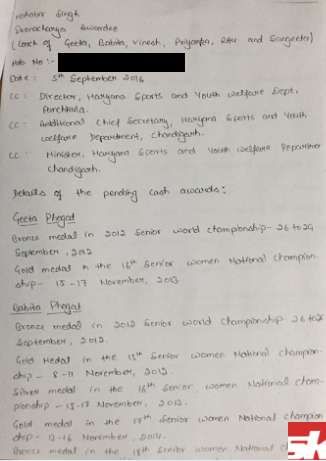 Mahavir Singh
Dronacharya Awardee
(Coach of Geeta, Babita, Vinesh, Priyanka, Ritu and Sangeeta)
Mob No :-
Date : 5th September 2016
CC : Director, Haryana Sports and Youth welfare Dept,
Panchkula.
CC : Additional Chief Secretary, Haryana Sports and Youth
welfare Department, Chandigarh.
CC : Minister, Haryana Sports and Youth welfare Department
Chandigarh.
Details of the pending cash awards :
Geeta Phogat
Bronze medal in 2012 Senior world championship - 26 to 29
September, 2012
Gold medal in the 16th Senior women National champion-
ship - 15 - 17 November, 2013
Babita Phogat
Bronze medal in 2012 Senior world Championship 26 to
September, 2012.
Gold Medal in the 15th Senior women National champion-
ship - 8 - 11 November, 2012.
Silver medal in the 16th Senior women National cham-
pionship - 15-17 November, 2013.
Gold medal in the Senior women National champion
ship - 12-16 November, 2014.
Bronze medal in the 18th Senior women National
SK